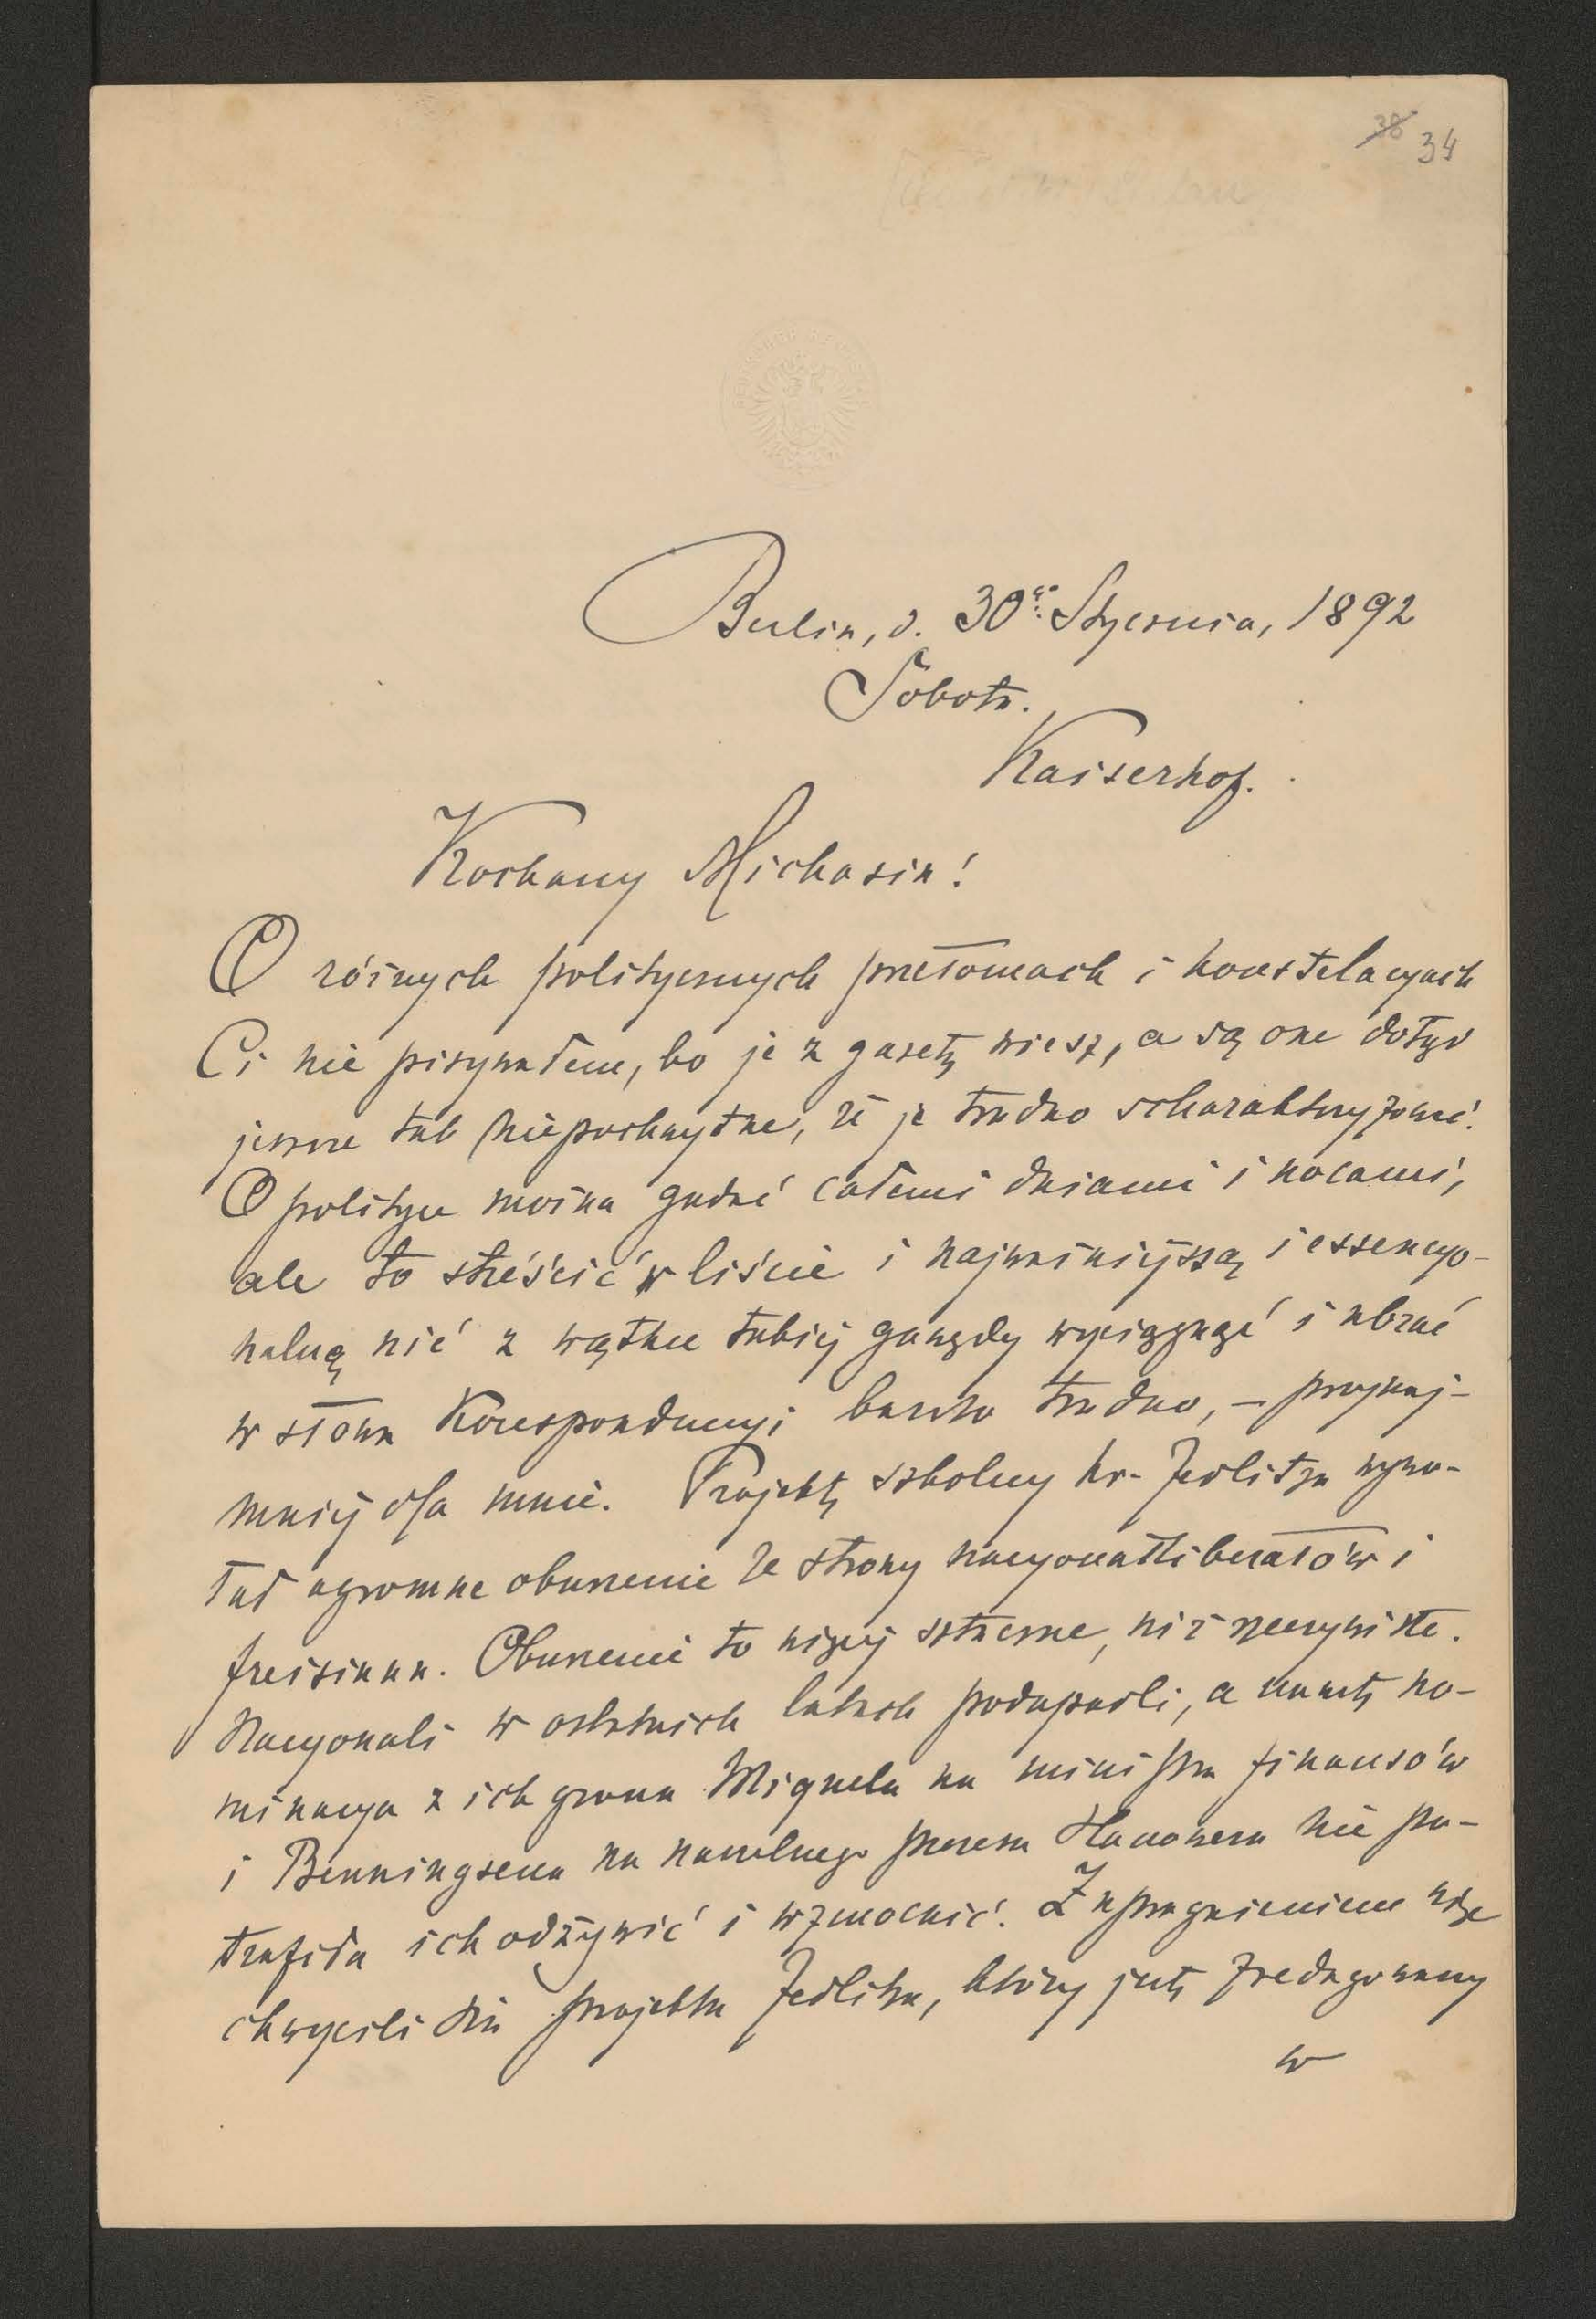 38 34
Berlin, d. 30go Stycznia, 1892
Sobota.
Kaiserhof.
Kochany Michasiu!
O różnych politycznych przełomach i konstelacyach
Ci nie pisywałem, bo je z gazet wiesz, a są one dotąd
jeszcze tak niepochwytne, że je trudno scharakteryzować.
O polityce można gadać całemi dniami i nocami,
ale to streścić w liście i najważniejszą i essencyo-
nalną nić z wątku takiej gawędy wyciągnąć i ubrać
w słowa korespondencyi bardzo trudno, – przynaj-
mniej dla mnie. Projekt szkolny hr. Zedlitza wywo-
łał ogromne oburzenie ze strony nacyonalliberałów i
freisinnu. Oburzenie to więcej sztuczne, niż rzeczywiste.
Nacyonali w ostatnich latach podupadli, a nawet no-
minacya z ich grona Miquela na ministra finansów
i Benningsena na naczelnego prezesa Hanoweru nie po-
trafiła ich odżywić i wzmocnić. Z upragnieniem więc
chwycili się projektu Zedlitza, który jest zredagowany
w